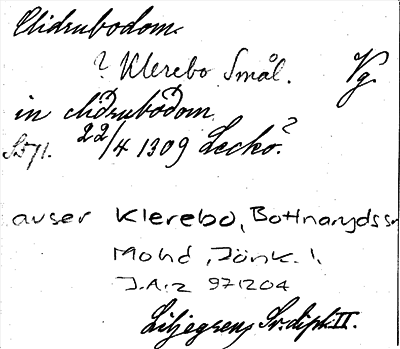 Clidrubodom
? Klerebo Smål. Vg.
in cliđrubođom
22/4 1309 Leckö?
avser Klerebo, Bottnaryds sn
Mohd, Jönk. l.
J.A:z 971204
Liljegrens Sv. dipl. II.